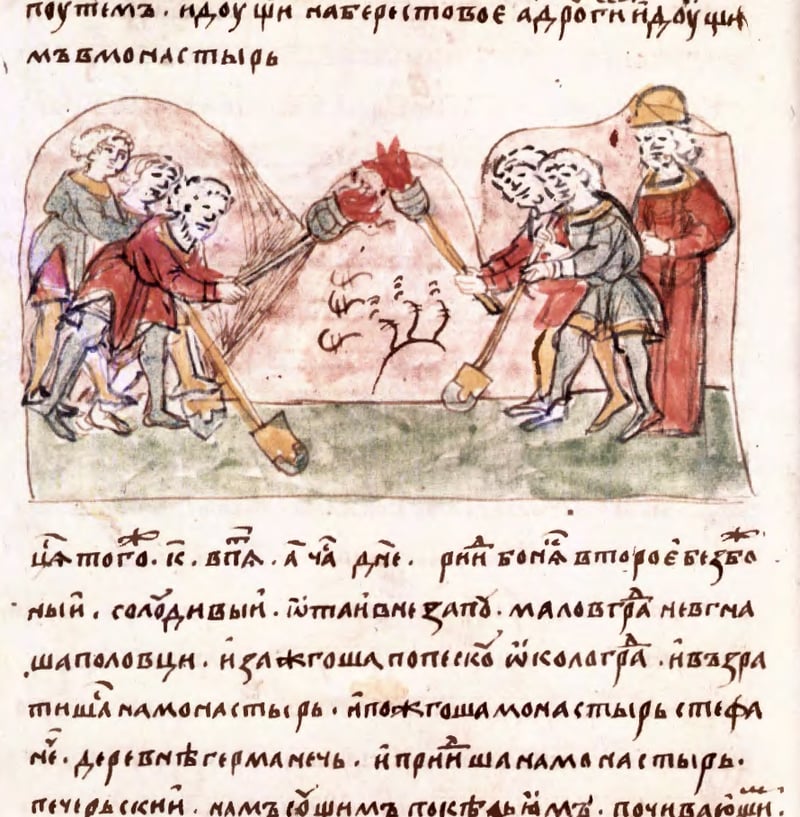 поутемъ · идоущи на берестовоє а дрогии идоущи
мъ в монастырь
ц҃ѧ того ж · к҃ · в пѧ · а҃ ча дн҃е · прииде бонѧ второє безбо
ныи · солоудивыи · ѿтаи внезапоу · мало в гра не вгна
ша половци · и зажгоша по песко ѿколо гра · и възра
тишаⷭ на монастырь · и пожгоша монастырь стефа
не · деревнѣ германечь · и приидоша на монастырь ·
печерьскии · намъ соущимъ по кѣльꙗмъ · почивающи ·